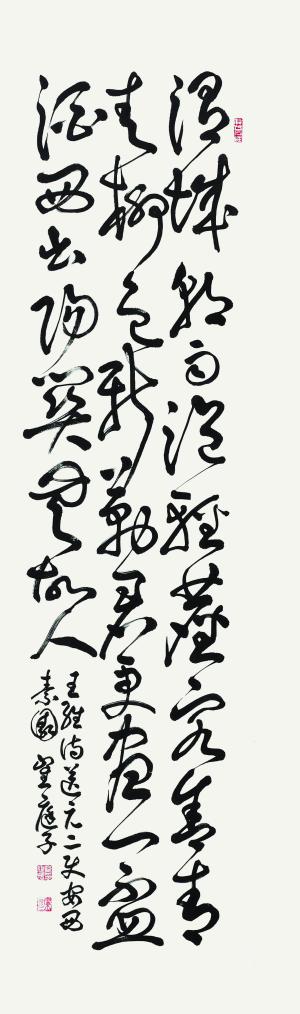 渭城朝雨浥輕塵客舍青
青柳色新勸君更盡一盃
酒西出陽關無故人
王維詩送元二使安西
素園 庭子